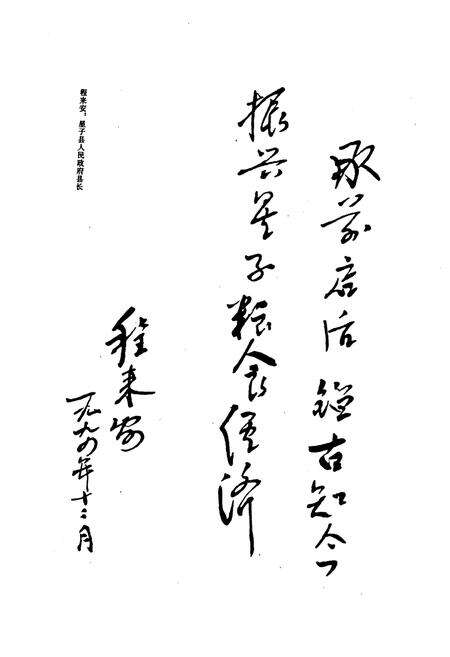 承前启后 鉴古知今
振兴星子粮食经济
程来安
一九九四年十二月
程来安:星子县人民政府县长